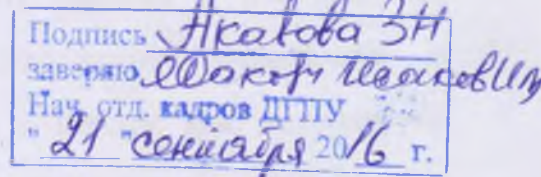 Подпись Акавова ЗН
заверяю
Нач. отд. кадров ДГПУ
"21" сентября 2016 г.